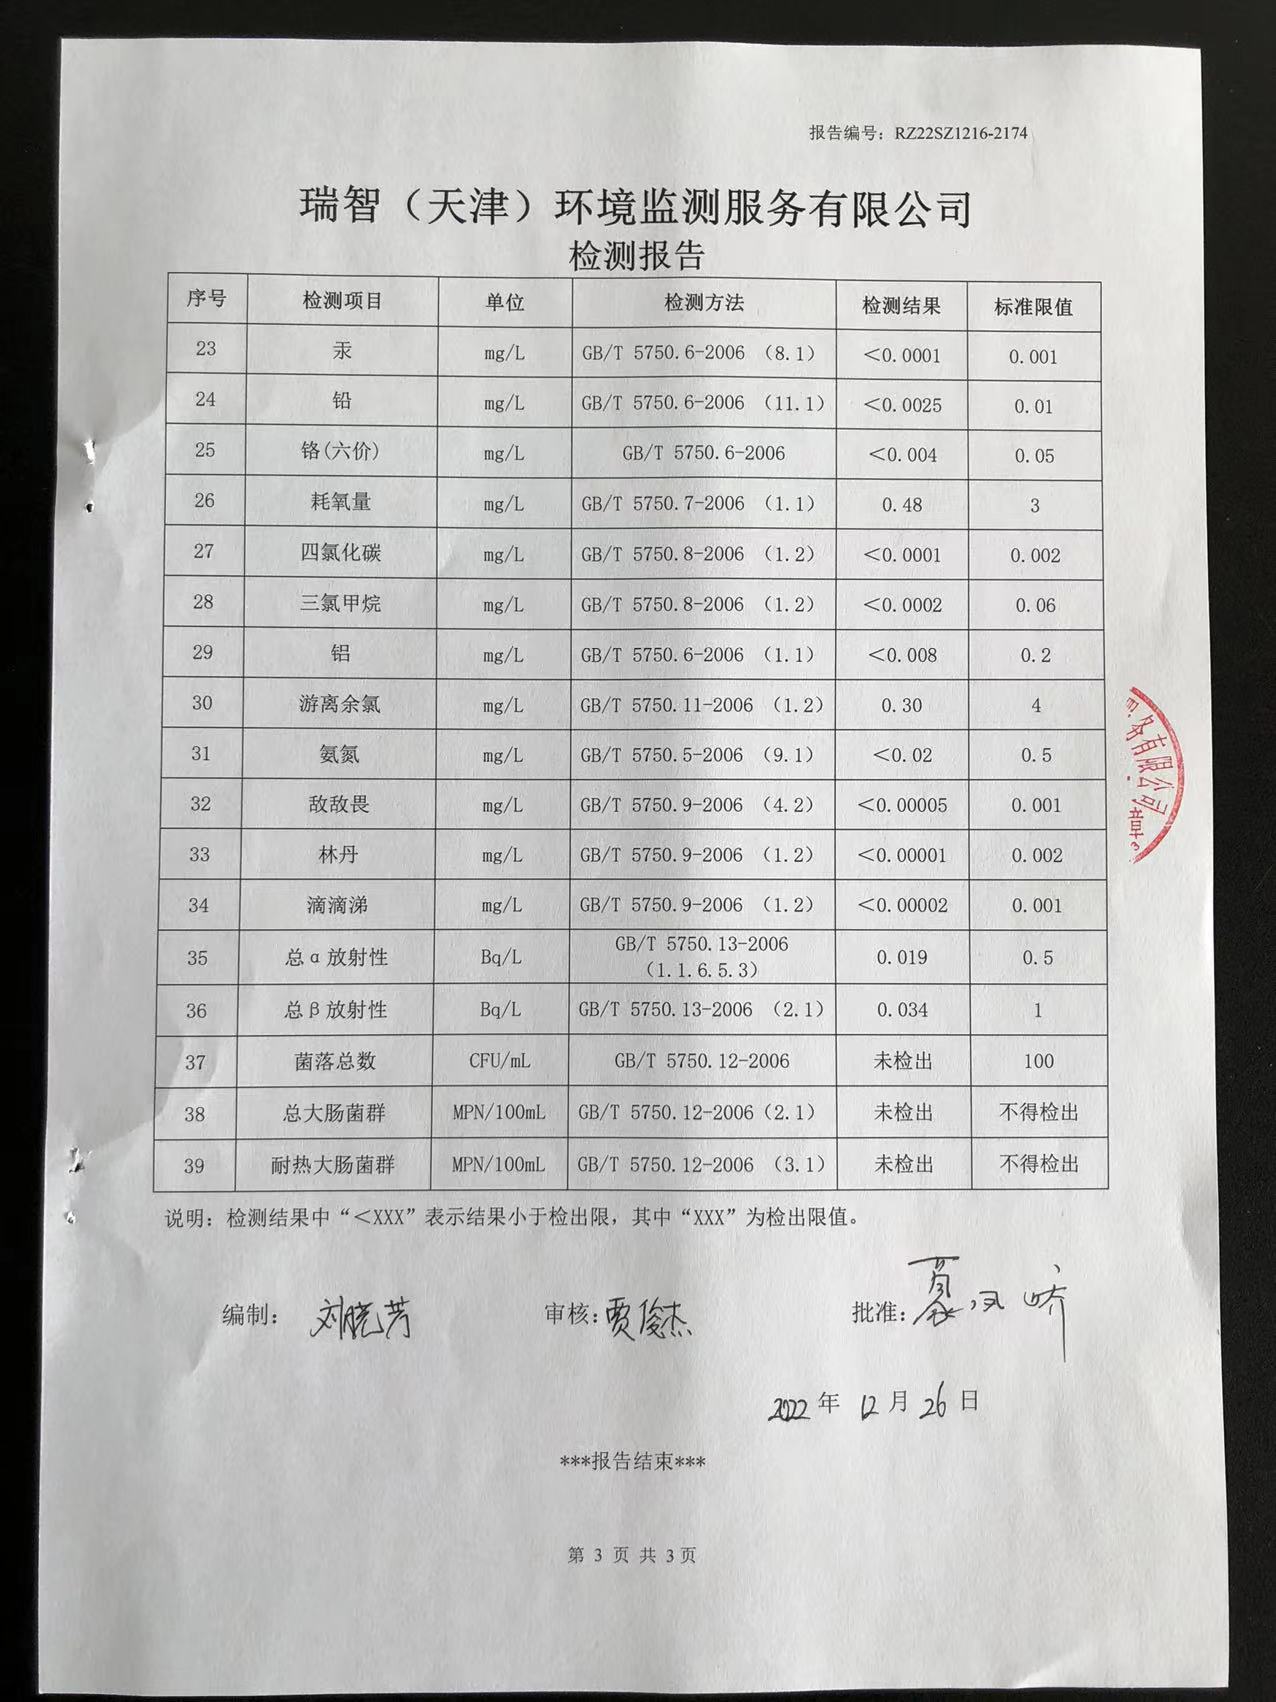 报告编号：RZ22SZ1216-2174
瑞智（天津）环境监测服务有限公司
检测报告
序号 检测项目 单位 检测方法 检测结果 标准限值
23 汞 mg/L GB/T 5750.6-2006 （8.1） ＜0.0001 0.001
24 铅 mg/L GB/T 5750.6-2006 （11.1） ＜0.0025 0.01
25 铬(六价) mg/L GB/T 5750.6-2006 ＜0.004 0.05
26 耗氧量 mg/L GB/T 5750.7-2006 （1.1） 0.48 3
27 四氯化碳 mg/L GB/T 5750.8-2006 （1.2） ＜0.0001 0.002
28 三氯甲烷 mg/L GB/T 5750.8-2006 （1.2） ＜0.0002 0.06
29 铝 mg/L GB/T 5750.6-2006 （1.1） ＜0.008 0.2
30 游离余氯 mg/L GB/T 5750.11-2006 （1.2） 0.30 4
31 氨氮 mg/L GB/T 5750.5-2006 （9.1） ＜0.02 0.5
32 敌敌畏 mg/L GB/T 5750.9-2006 （4.2） ＜0.00005 0.001
33 林丹 mg/L GB/T 5750.9-2006 （1.2） ＜0.00001 0.002
34 滴滴涕 mg/L GB/T 5750.9-2006 （1.2） ＜0.00002 0.001
35 总α放射性 Bq/L GB/T 5750.13-2006 （1.1.6.5.3） 0.019 0.5
36 总β放射性 Bq/L GB/T 5750.13-2006 （2.1） 0.034 1
37 菌落总数 CFU/mL GB/T 5750.12-2006 未检出 100
38 总大肠菌群 MPN/100mL GB/T 5750.12-2006（2.1） 未检出 不得检出
39 耐热大肠菌群 MPN/100mL GB/T 5750.12-2006 （3.1） 未检出 不得检出
务有限公司
章
3
说明：检测结果中“＜XXX”表示结果小于检出限，其中“XXX”为检出限值。
编制：刘晓芳 审核：贾俊杰 批准：
2022年 12月 26日
***报告结束***
第 3 页 共 3 页